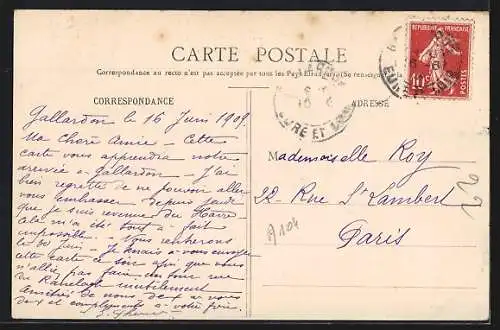 CARTE POSTALE
Correspondance au recto n'est pas acceptée par tous les Pays Etrangers (Se renseigner
CORRESPONDANCE
ADRESSE
REPUBLIQUE FRANÇAISE
10c
POSTES
EURE ET LOIR
Gallardon le 16 Juin 1909
Ma Chère Amie - Cette
carte vous apprendra notre
arrivée à Gallardon - J'ai
bien regretté de ne pouvoir aller
vous embrasser depuis jeudi
que je suis revenue du Hâvre
Cela m'a été tout à fait
impossible. Nous rentrerons
le 30 Juin - Je tenais à vous envoyer
cette carte afin que vous
n'alliez pas faire
du Ranelagh inutilement
Amitiés de nous deux à vous
deux et compliments à votre frère
Mademoiselle Roy
22 - Rue St Lambert
Paris
A104